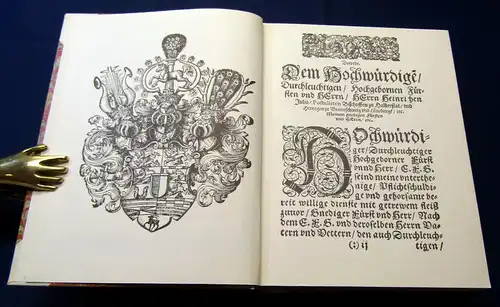 Vorrede.
Dem Hochwürdigē/
Durchleuchtigen / Hochgebornen Für-
sten vnd HErrn / HErrn Heinrichen
Julio / Postulirten Bischoffen zu Halberstat / vnd
Hertzogen zu Braunschweig vnd Lüneburg / etc.
Meinem gnedigen Fürsten
vnd HErrn / etc.
HOchwürdi-
ger / Durchleuchtiger
Hochgeborner Fürst
vnnd Herr / E. F. G.
seind meine vnterthe-
nige / Pflichtschuldi-
ge vnd gehorsame be-
reit willige dienste mit getrewem fleiß
zuuor / Gnediger Fürst vnd Herr / Nach
dem E. F. G. vnd deroselben Herrn Va-
tern vnd Vettern / den auch Durchleuch-
(:) ij
tigen /